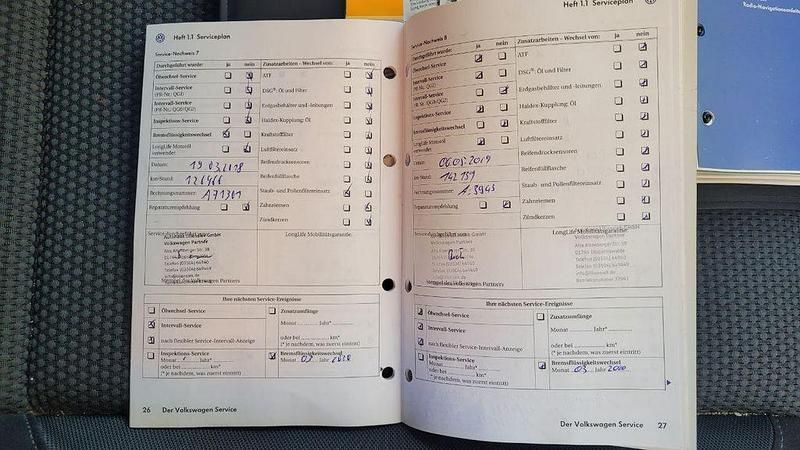 Heft 1.1 Serviceplan
Service-Nachweis 7
Durchgeführt wurde: ja nein Zusatzarbeiten - Wechsel von: ja nein
Ölwechsel-Service
ATF
Intervall-Service
(PR-Nr.: QG1)
DSG®: Öl und Filter
Intervall-Service
(PR-Nr.: QG0/QG2)
Erdgasbehälter und -leitungen
Inspektions-Service
Haldex-Kupplung: Öl
Bremsflüssigkeitswechsel
Kraftstofffilter
LongLife Motoröl
verwendet
Luftfiltereinsatz
Datum: 19.03.2018
Reifendrucksensoren
km-Stand:
Reifenfüllflasche
Rechnungsnummer: A71301
Staub- und Pollenfiltereinsatz
Reparaturempfehlung
Zahnriemen
Zündkerzen
LongLife Mobilitätsgarantie:
Volkswagen Partner
Stempel des Volkswagen Partners
Ihre nächsten Service-Ereignisse
Ölwechsel-Service
Zusatzumfänge
Intervall-Service
Monat Jahr*
nach flexibler Service-Intervall-Anzeige
oder bei km*
(* je nachdem, was zuerst eintritt)
Inspektions-Service
Monat Jahr*
oder bei km*
(* je nachdem, was zuerst eintritt)
Bremsflüssigkeitswechsel
Monat 03 Jahr 2020
26 Der Volkswagen Service
Heft 1.1 Serviceplan
Service-Nachweis 8
Durchgeführt wurde: ja nein Zusatzarbeiten - Wechsel von: ja nein
Ölwechsel-Service
ATF
Intervall-Service
(PR-Nr.: QG1)
DSG®: Öl und Filter
Intervall-Service
(PR-Nr.: QG0/QG2)
Erdgasbehälter und -leitungen
Inspektions-Service
Haldex-Kupplung: Öl
Bremsflüssigkeitswechsel
Kraftstofffilter
LongLife Motoröl
verwendet
Luftfiltereinsatz
Datum: 06.05.2019
Reifendrucksensoren
km-Stand: 142 139
Reifenfüllflasche
Rechnungsnummer:
Staub- und Pollenfiltereinsatz
Reparaturempfehlung
Zahnriemen
Zündkerzen
LongLife Mobilitätsgarantie:
Volkswagen Partner
Stempel des Volkswagen Partners
Ihre nächsten Service-Ereignisse
Ölwechsel-Service
Zusatzumfänge
Intervall-Service
Monat Jahr*
nach flexibler Service-Intervall-Anzeige
oder bei km*
(* je nachdem, was zuerst eintritt)
Inspektions-Service
Monat Jahr*
oder bei km*
(* je nachdem, was zuerst eintritt)
Bremsflüssigkeitswechsel
Monat 03 Jahr 2020
Der Volkswagen Service 27